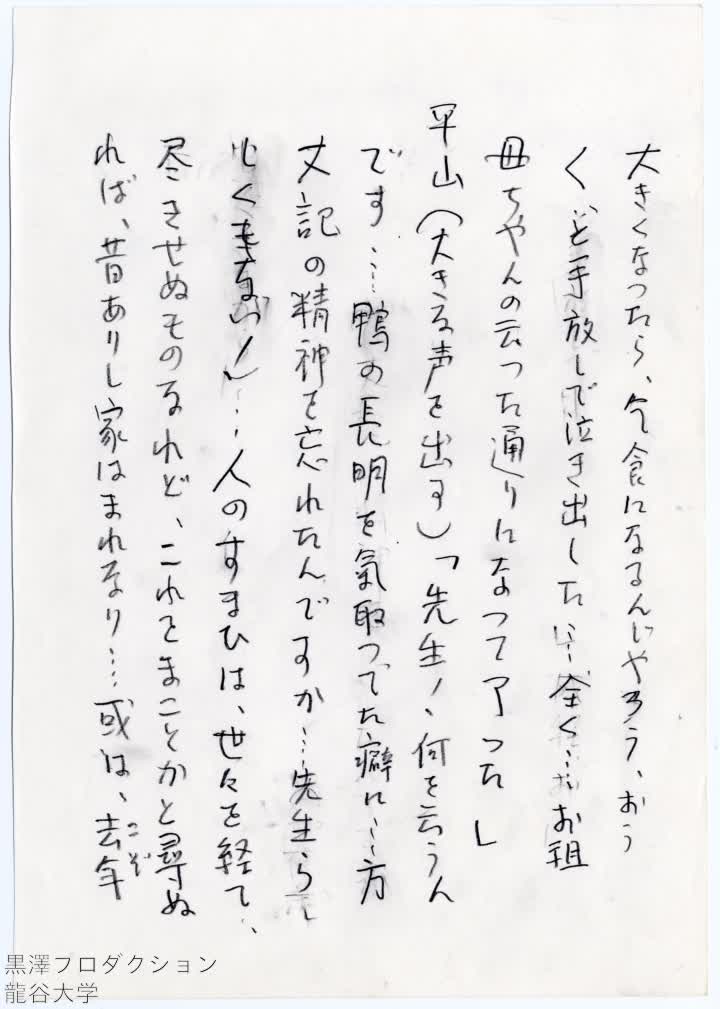 大きくなったら、乞食になるんじやろう、おう
くヽと手放しで泣き出した……全く……お祖
母ちやんの云った通りになって了った」
平山（大きな声を出す）「先生！、何を云うん
です……鴨の長明を氣取ってた癖に……方
丈記の精神を忘れたんですか……先生らし
くもない！」……人のすまひは、世々を経て、
尽きせぬものなれど、これをまことかと尋ぬ
れば、昔ありし家はまれなり……或は、去年
こぞ
黒澤プロダクション
龍谷大学